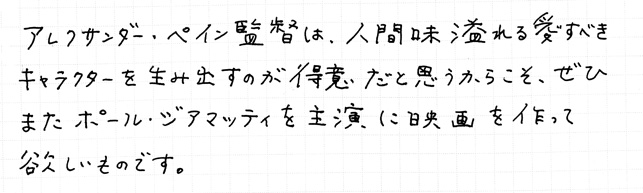 アレクサンダー・ペイン監督は、人間味溢れる愛すべき
キャラクターを生み出すのが得意だと思うからこそ、ぜひ
またポール・ジアマッティを主演に映画を作って
欲しいものです。